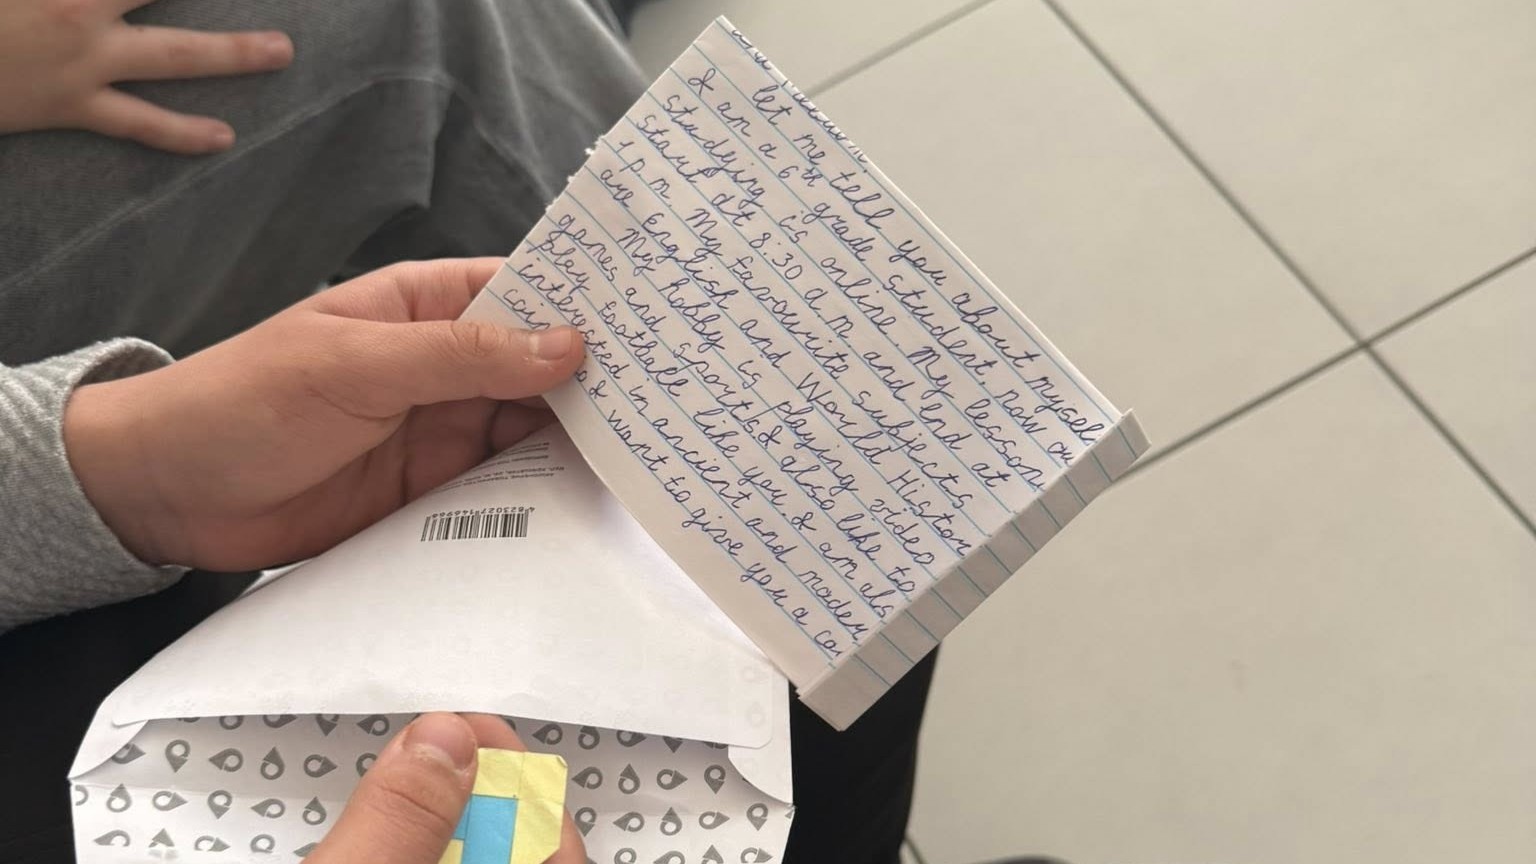 let me tell you about mysel
I am a 6th grade student. now ou
studying is online. My lesson
start at 8.30 a.m and end at
1 p.m My favourite subjects
are English and World Histor
My hobby is playing video
games and sports. I also like to
play football like you. I am als
interested in ancient and moder
I want to give you a co
4823027146964